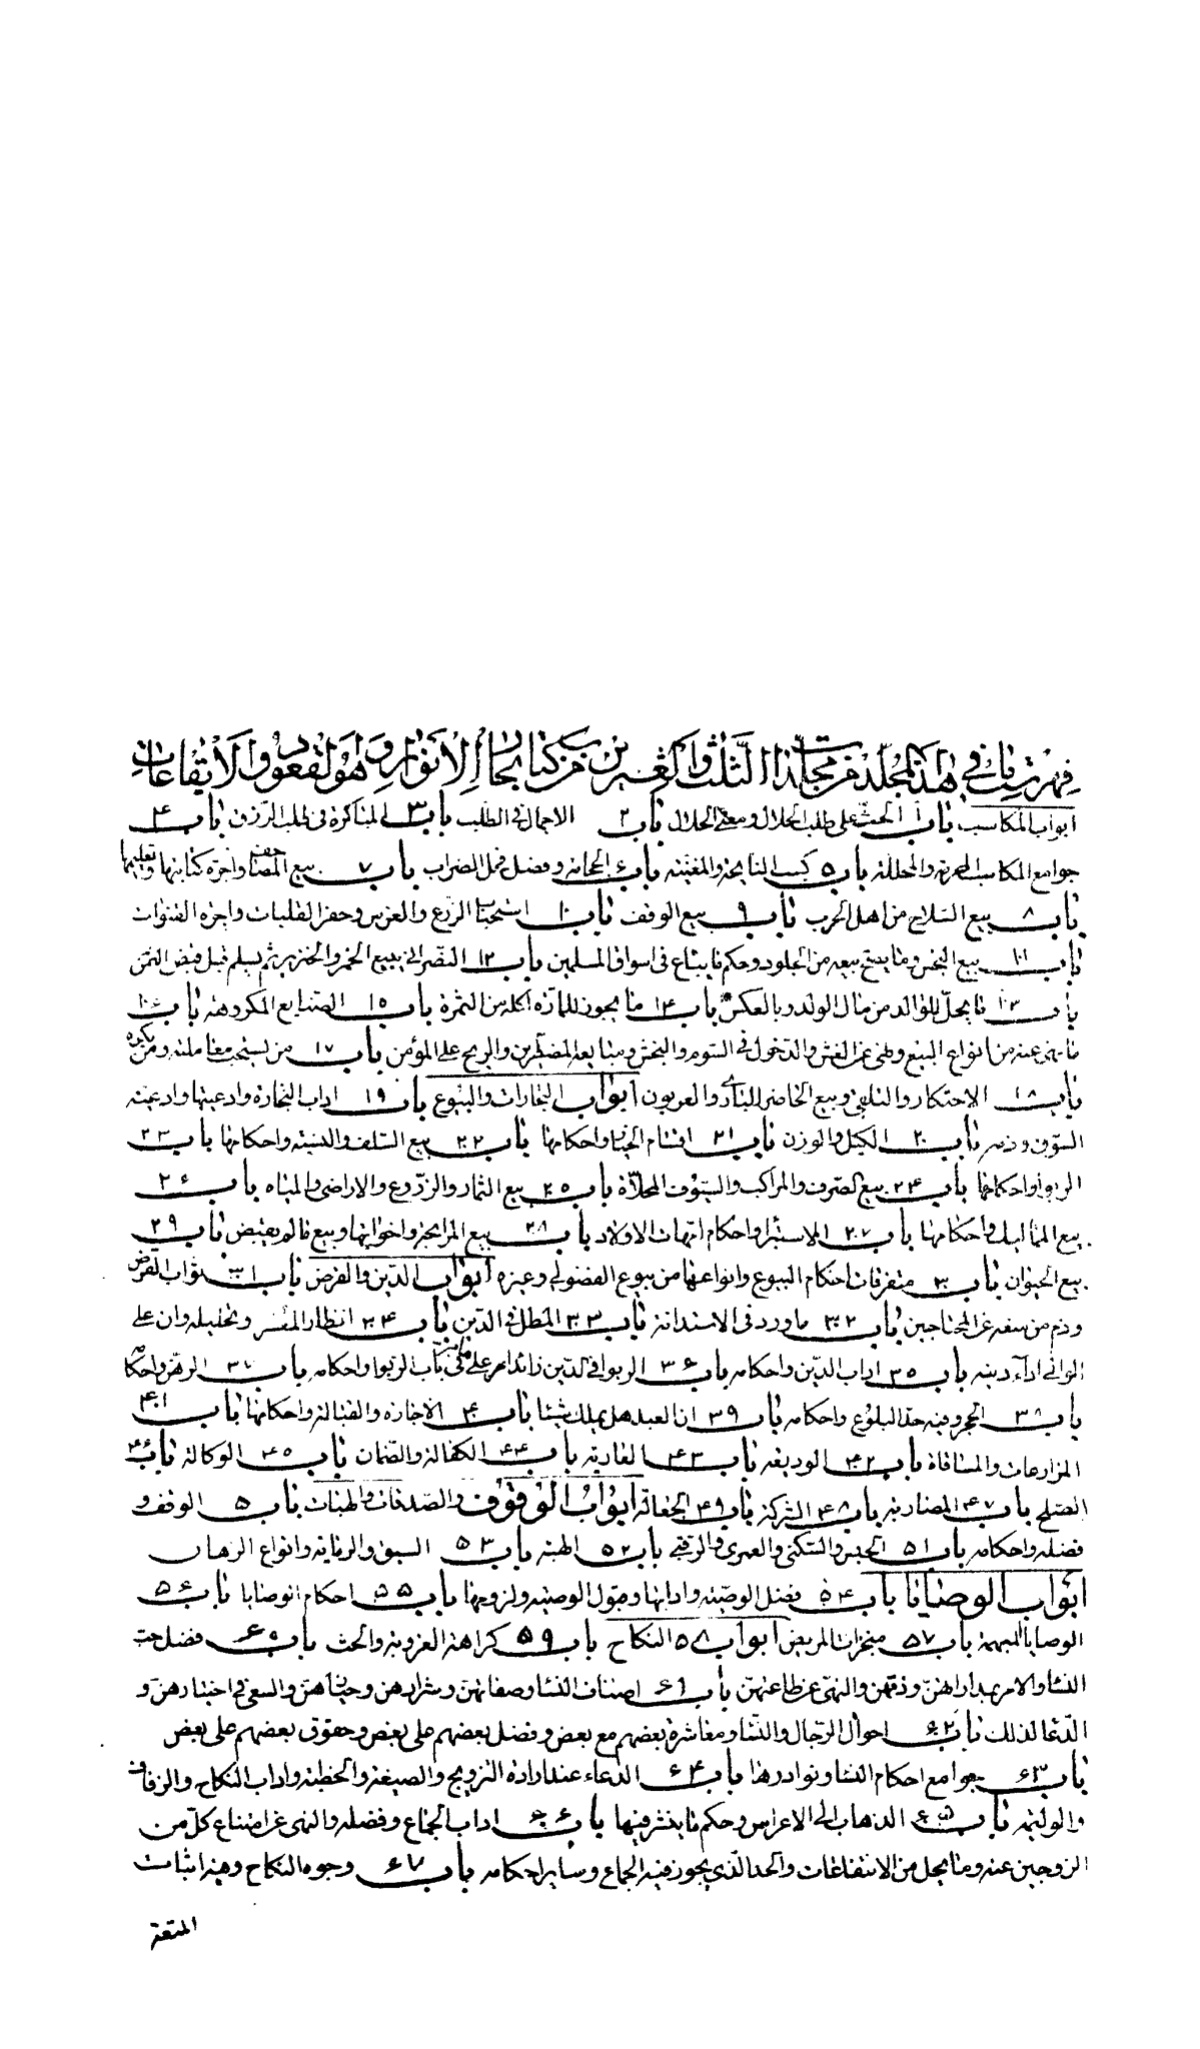 فهرست ما في هذا المجلد من مجلدات الثالث والعشرين من كتاب بحار الأنوار وهو العقود والايقاعات
ابواب المكاسب باب ١ الحث على طلب الحلال ومعنى الحلال باب ٢ الاجمال في الطلب باب ٣ المباكرة في طلب الرزق باب ۴
جوامع المكاسب المحرمة والمحللة باب ۵ كسب النايحة والمغنية باب ۶ الحجامة وفحل الضراب باب ٧ بيع المصاحف واجرة كتابتها وتعليمها
باب ٨ بيع السلاح من اهل الحرب باب ٩ بيع الوقف باب ١٠ استحباب الزرع والغرس وحفر القلبات واجراء القنوات
باب ١١ بيع النجس وما يصح بيعه من الجلود وحكم ما يباع في اسواق المسلمين باب ١٢ النصراني يبيع الخمر والخنزير ثم يسلم قبل قبض الثمن
باب ١٣ ما يحل للوالد من مال الولد وبالعكس باب ١۴ ما يجوز للمارة اكله من الثمرة باب ١۵ الصنايع المكروهة باب ١۶
ما نهى عنه من انواع البيع والنهى عن الغش والدخول في السوم والنجش ومبايعة المضطرين والربح على المؤمن باب ١٧ من يستحب معاملته ومن يكره
باب ١٨ الاحتكار والتلقي وبيع الحاضر للبادي والعربون ابواب التجارات والبيوع باب ١٩ اداب التجارة وادعيتها وادعية
السوق وذمه باب ٢٠ الكيل والوزن باب ٢١ اقسام الخيار واحكامها باب ٢٢ بيع السلف والنسيئة واحكامها باب ٢٣
الربوا واحكامها باب ٢۴ بيع الصرف والمراكب والسيوف المحلاة باب ٢۵ بيع الثمار والزروع والاراضي والمياه باب ٢۶
بيع المماليك واحكامها باب ٢٧ الاستبراء واحكام امهات الاولاد باب ٢٨ بيع المرابحة واخواتها وبيع ما لم يقبض باب ٢٩
بيع الحيوان باب ٣٠ متفرقات احكام البيوع وانواعها من بيوع الفضولي وغيره ابواب الدين والقرض باب ٣١ ثواب القرض
وذم من منعه عن المحتاجين باب ٣٢ ما ورد في الاستدانة باب ٣٣ المطل في الدين باب ٣۴ انظار المعسر وتحليله وان على
الوالي اداء دينه باب ٣۵ اداب الدين واحكامه باب ٣۶ الربوا في الدين زائدا مر على في باب الربوا واحكامه باب ٣٧ الرهن واحكامه
باب ٣٨ الحجر وفيه حد البلوغ واحكامه باب ٣٩ ان العبد هل يملك شيئا باب ۴٠ الاجارة والقبالة واحكامها باب ۴١
المزارعات والمساقاة باب ۴٢ الوديعة باب ۴٣ العارية باب ۴۴ الكفالة والضمان باب ۴۵ الوكالة باب ۴۶
الصلح باب ۴٧ المضاربة باب ۴٨ الشركة باب ۴٩ الجعالة ابواب الوقوف والصدقات والهبات باب ۵٠ الوقف و
فضله واحكامه باب ۵١ الحبس والسكنى والعمرى والرقبى باب ۵٢ الهبة باب ۵٣ السبق والرماية وانواع الرهان
ابواب الوصايا باب ۵۴ فضل الوصية وادابها وقبول الوصية ولزومها باب ۵۵ احكام الوصايا باب ۵۶
الوصايا المبهمة باب ۵٧ منجزات المريض ابواب ۵٨ النكاح باب ۵٩ كراهة العزوبة والحث باب ۶٠ فضل حب
النساء والامر بمداراهن وذمهن والنهي عن طاعتهن باب ۶١ اصناف النساء وصفاتهن وشرارهن وخيارهن والسعي في اختيارهن و
الدعاء لذلك باب ۶٢ احوال الرجال والنساء ومعاشرة بعضهم مع بعض وفضل بعضهم على بعض وحقوق بعضهم على بعض
باب ۶٣ جوامع احكام النساء ونوادرها باب ۶۴ الدعاء عند ارادة التزويج والصيغة والخطبة واداب النكاح والزفاف
والوليمة باب ۶۵ الذهاب الى الاعراس وحكم ما ينثر فيها باب ۶۶ اداب الجماع وفضله والنهي عن امتناع كل من
الزوجين عنه وما يحل من الانتفاعات والحد الذي يجوز فيه الجماع وساير احكامه باب ۶٧ وجوه النكاح وفيه اثبات
المتعة